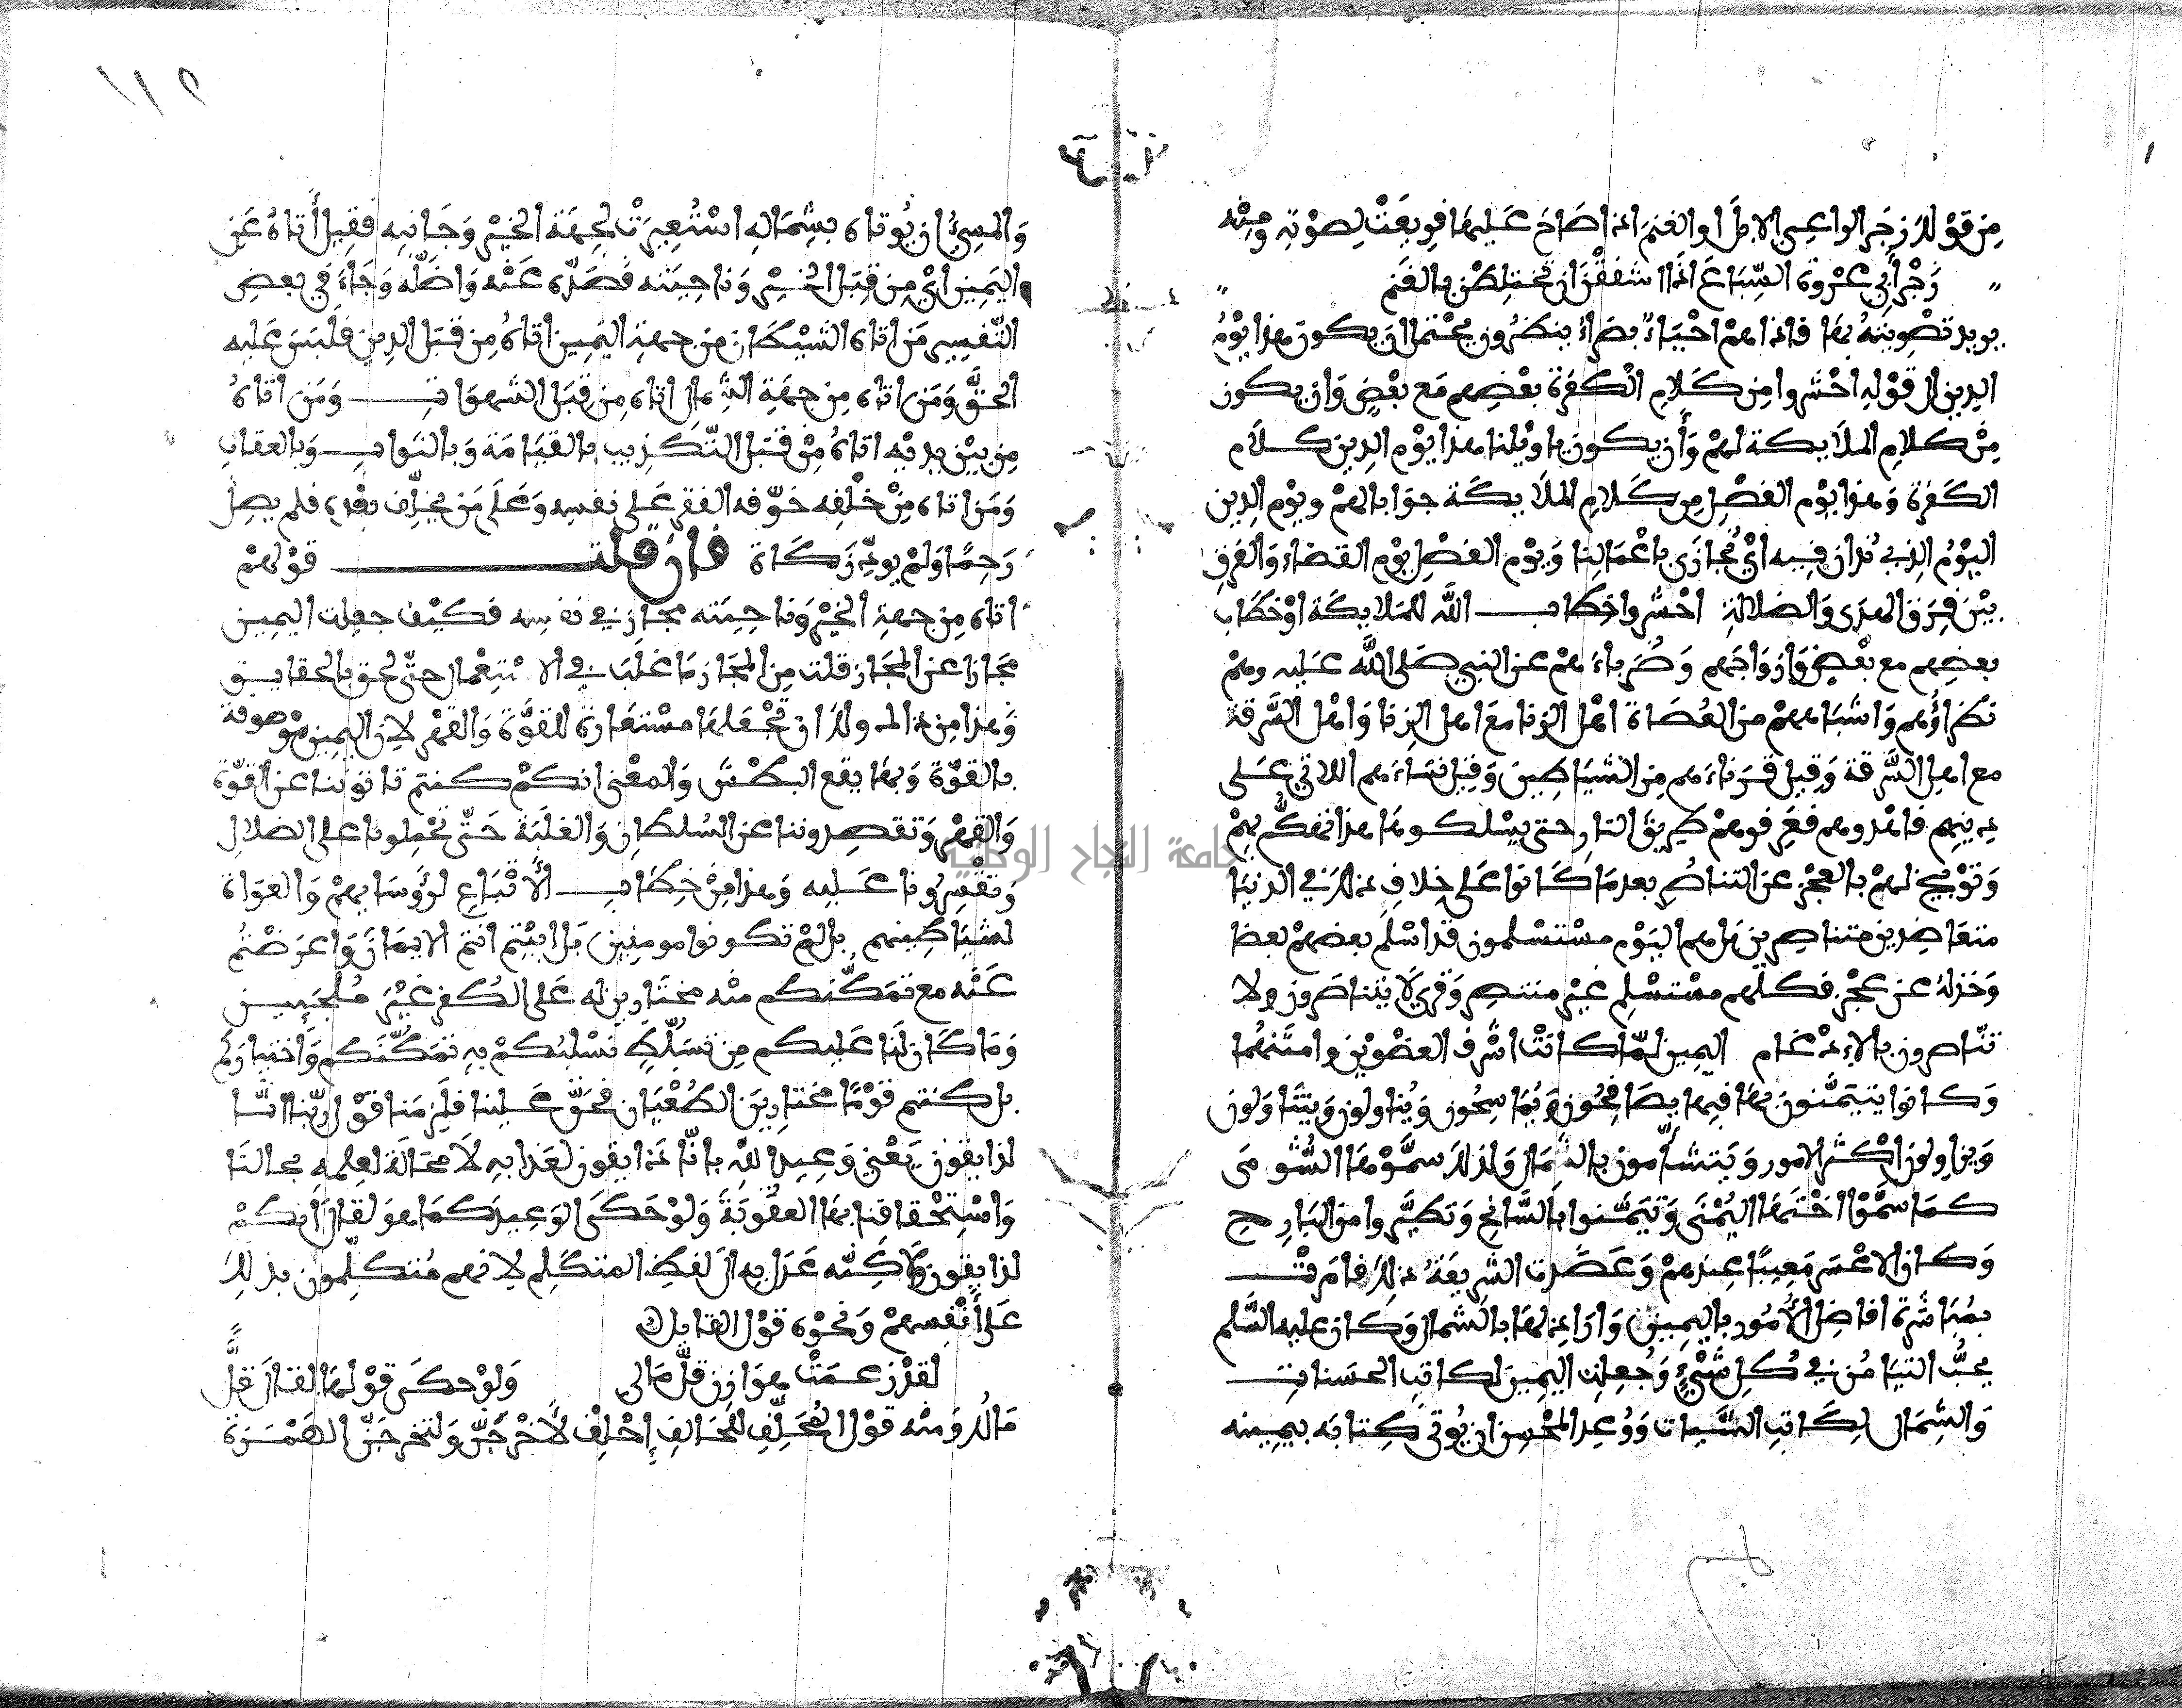 مِن قَوْلك زجَر الراعي الابلَ او الغنمَ اذا صَاحَ عَليهَا فرِيعَتْ لِصوْته ومِنْه
زَجْرَ أبي عُرْوة السِّبَاعَ اذا اشفقْنَ ان يختلطْن بالغَنم
يريد تصْويتهُ بهَا فاذا هُمْ احْيَاءٌ بصَراءُ ينظرُون يحْتمل ان يكونَ هذا يوْمُ
الدين الى قوْلهِ احْشروا مِن كَلامِ الكفرَة بعْضِهم مَع بعْضٍ وَان يكون
مِنْ كلامِ الملَايكة لهمْ وَأن يكون ياوَيْلنا هذا يوْم الدِين كلَام
الكفرَة وَهذا يوْم الفصْل مِن كَلام الملَايكَة جوَابا لهمْ ويوْم الدِين
اليوْمُ الذِي نُدان فِيه ايْ نُجَازَى باعْمَالنا وَيوْم الفصْل يوْم القضاء وَالفرْقِ
بيْنَ فِرَق الهدَى والضلالة احْشروا خِطَاب الله للمَلايكَة اوْ خطاب
بعضِهم مع بعْضٍ وَازوَاجَهم وَضُرَباءَهمْ عن النبي صَلى الله عَليه وهمْ
نظرَاؤُهم وَاشبَاههمْ من العُصَاة اهْل الزنا معَ اهل الزنا وَاهْل السَّرقة
مع اهل السَّرقة وَقيل قرَناءَهم مِن الشيَاطِينَ وَقيل نسَاءَهم اللاتي عَلى
دينِهم فاهْدوهم فعَرِّفوهمْ طريقَ النارِ حتى يسْلكوهَا هذا تهكُّم بهِمْ
وَتوْبيخ لهمْ بالعجْز عن التناصُرِ بعدمَا كَانوا عَلى خِلافِ ذلك في الدنيَا
متعَاضِدين متناصِرين بَل هم اليَوْم مسْتسْلمون قد اسْلم بعضهمْ بعضا
وَخذلهُ عن عجْز فكلّهم مسْتسْلِم غيْر منتصِر وَقرئ لَا تتناصَرون ولا
تنّاصرون بالادْغام اليمِين لمّا كانتْ اشْرفَ العضْوَين وامتَنهُما
وَكانوا يتيَمّنونَ بهَا فبِها يصَافِحُون وَيُمَاسِحُون وَيُناولون وَيتنَاوَلون
وَيزاوِلون اكثرَ الامور وَيَتشاءَمون بالشمَال وَلذلك سمَّوْهَا الشُّومَى
كمَا سمَّوْا اخْتهَا اليُمْنَى وَتيَمَّنوا بالسَّانِح وَتطيَّروا من البَارِح
وَكان الاعْسَر مَعِيبًا عِندهمْ وَعَضَدت الشريعَةُ ذلك فامَرتْ
بمُبَاشرَة افاضِل الأُمُور باليمِين وَارَاذِلهَا بالشمَال وَكان عليه السَّلم
يحبُّ التيَامُن في كُل شيْءٍ وَجُعِلت اليمِينَ لكاتِب الحسَنات
وَالشِّمَال لِكَاتِب السَّيئات وَوُعِد المحْسِن ان يُوتى كِتابَه بيمِينه
وَالمسِيءُ ان يُوتاه بشِمَاله اسْتُعِيرَتْ لجِهَة الخيْر وَجَانبِه فقِيل أَتاهُ عَن
اليَمِين ايْ مِن قِبَل الخيْر وَناحِيَته فصَدّه عَنْه وَاضَلّه وَجَاءَ في بعضِ
التّفسِير مَن اتاه الشيْطان من جهةِ اليَمِين اتاهُ مِن قِبَل الدِين فلَبَسَ عَليه
الحقَّ وَمَن اتاه مِن جهَةِ الشمال اتاه مِن قِبَل الشهوَات وَمَن اتاهُ
مِن بيْن يديْه اتاهُ مِنْ قِبَل التّكذِيب بالقيَامَة وَبالثوَاب وَبالعقاب
وَمَن اتاه مِنْ خلْفِه خوّفه الفقر عَلى نفسِه وَعَلى مَن يخلِّف بعْده فلم يصِلْ
رَحِمًا وَلمْ يودِّ زَكَاة فان قلت قوْلهمْ
اتاه مِن جهةِ الخيْر وَناحِيَته مجاز في نفسِه فكيْف جعِلت اليمِين
مجَازا عن المجَاز قلت مِن المجَاز مَا غلَبَ في الاسْتعْمال حتّى لحق بالحقايق
وَهذا مِن ذاك ولك ان تجْعَلهَا مسْتعَارة للقوَّة وَالقهْر لان اليمين موْصوفة
بالقوّة وَبهَا يقع البطْش وَالمعْنى انكمْ كنتم تاتوننا عن القوّة
وَالقهْر وَتقصِدوننا عن السُلطَان وَالغلَبَة حَتّى تحْمِلونا على الضلال
وَتقْسِرُونا عَليه وَهذا مِنْ خِطَاب الأَتْباع لرُؤَسَايهمْ وَالغوَاة
لشيَاطينهم بل لمْ تكونوا مومِنِين بَل ابَيْتم انتم الايمَانَ وَاعرَضْتم
عَنْه مع تمَكّنكم منْه مختَارين له عَلى الكُفر غيْرَ مُلجَيِين
وَمَا كَان لنَا عَليكم مِن تسَلّطٍ نسْلبُكمْ بهِ تمَكّنَكم وَاختيَارَكمْ
بل كنتم قوْمًا مختارِينَ الطُغْيَان فحَقَّ عَلينا فلَزِمَنا قوْل ربّنا انّا
لذايقون يَعْني وَعِيدَ اللهِ بانّا ذايقون لعَذابِهِ لَا محَالَة لعِلمِهِ بحالنَا
وَاسْتِحْقاقِنا بهَا العقوبَةَ وَلوْ حَكَى الوَعِيدَ كمَا هوَ لقال أنكمْ
لذايقون وَلَاكِنّه عَدل بهِ الى لفظِ المتكَلِم لانهم مُتكلِّمون بذلك
عَلى أَنْفسِهمْ وَنحْوه قوْل القايل
لقدْ زعمَتْ هوَازِن قلَّ مَالي وَلوْ حكَى قوْلهَا لقال قلَّ
مَالك وَمنْه قوْل المُحَلِّفِ للحَالفِ إحْلِفْ لَأخْرجَنّ وَلتخرجَنّ الهَمْزة